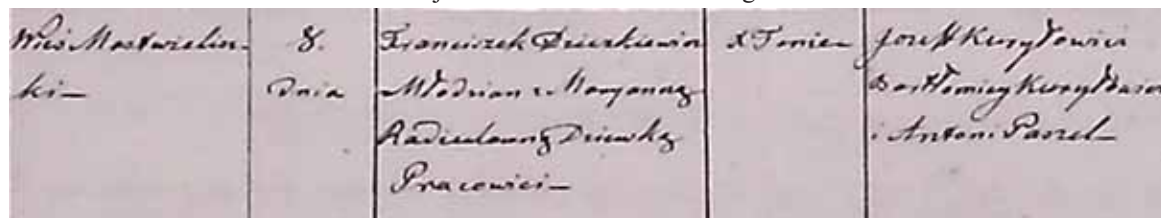 Wieś Mostwielin-
ki —
8.
dnia
Franciszek Dzieszkiewicz
Młodzian z Maryanną
Radiulowną Dziewką
Pracowici —
X Tenien
Jozeff Kuryłowicz
Bartłomiey Kuryłowicz
i Antoni Paszel —